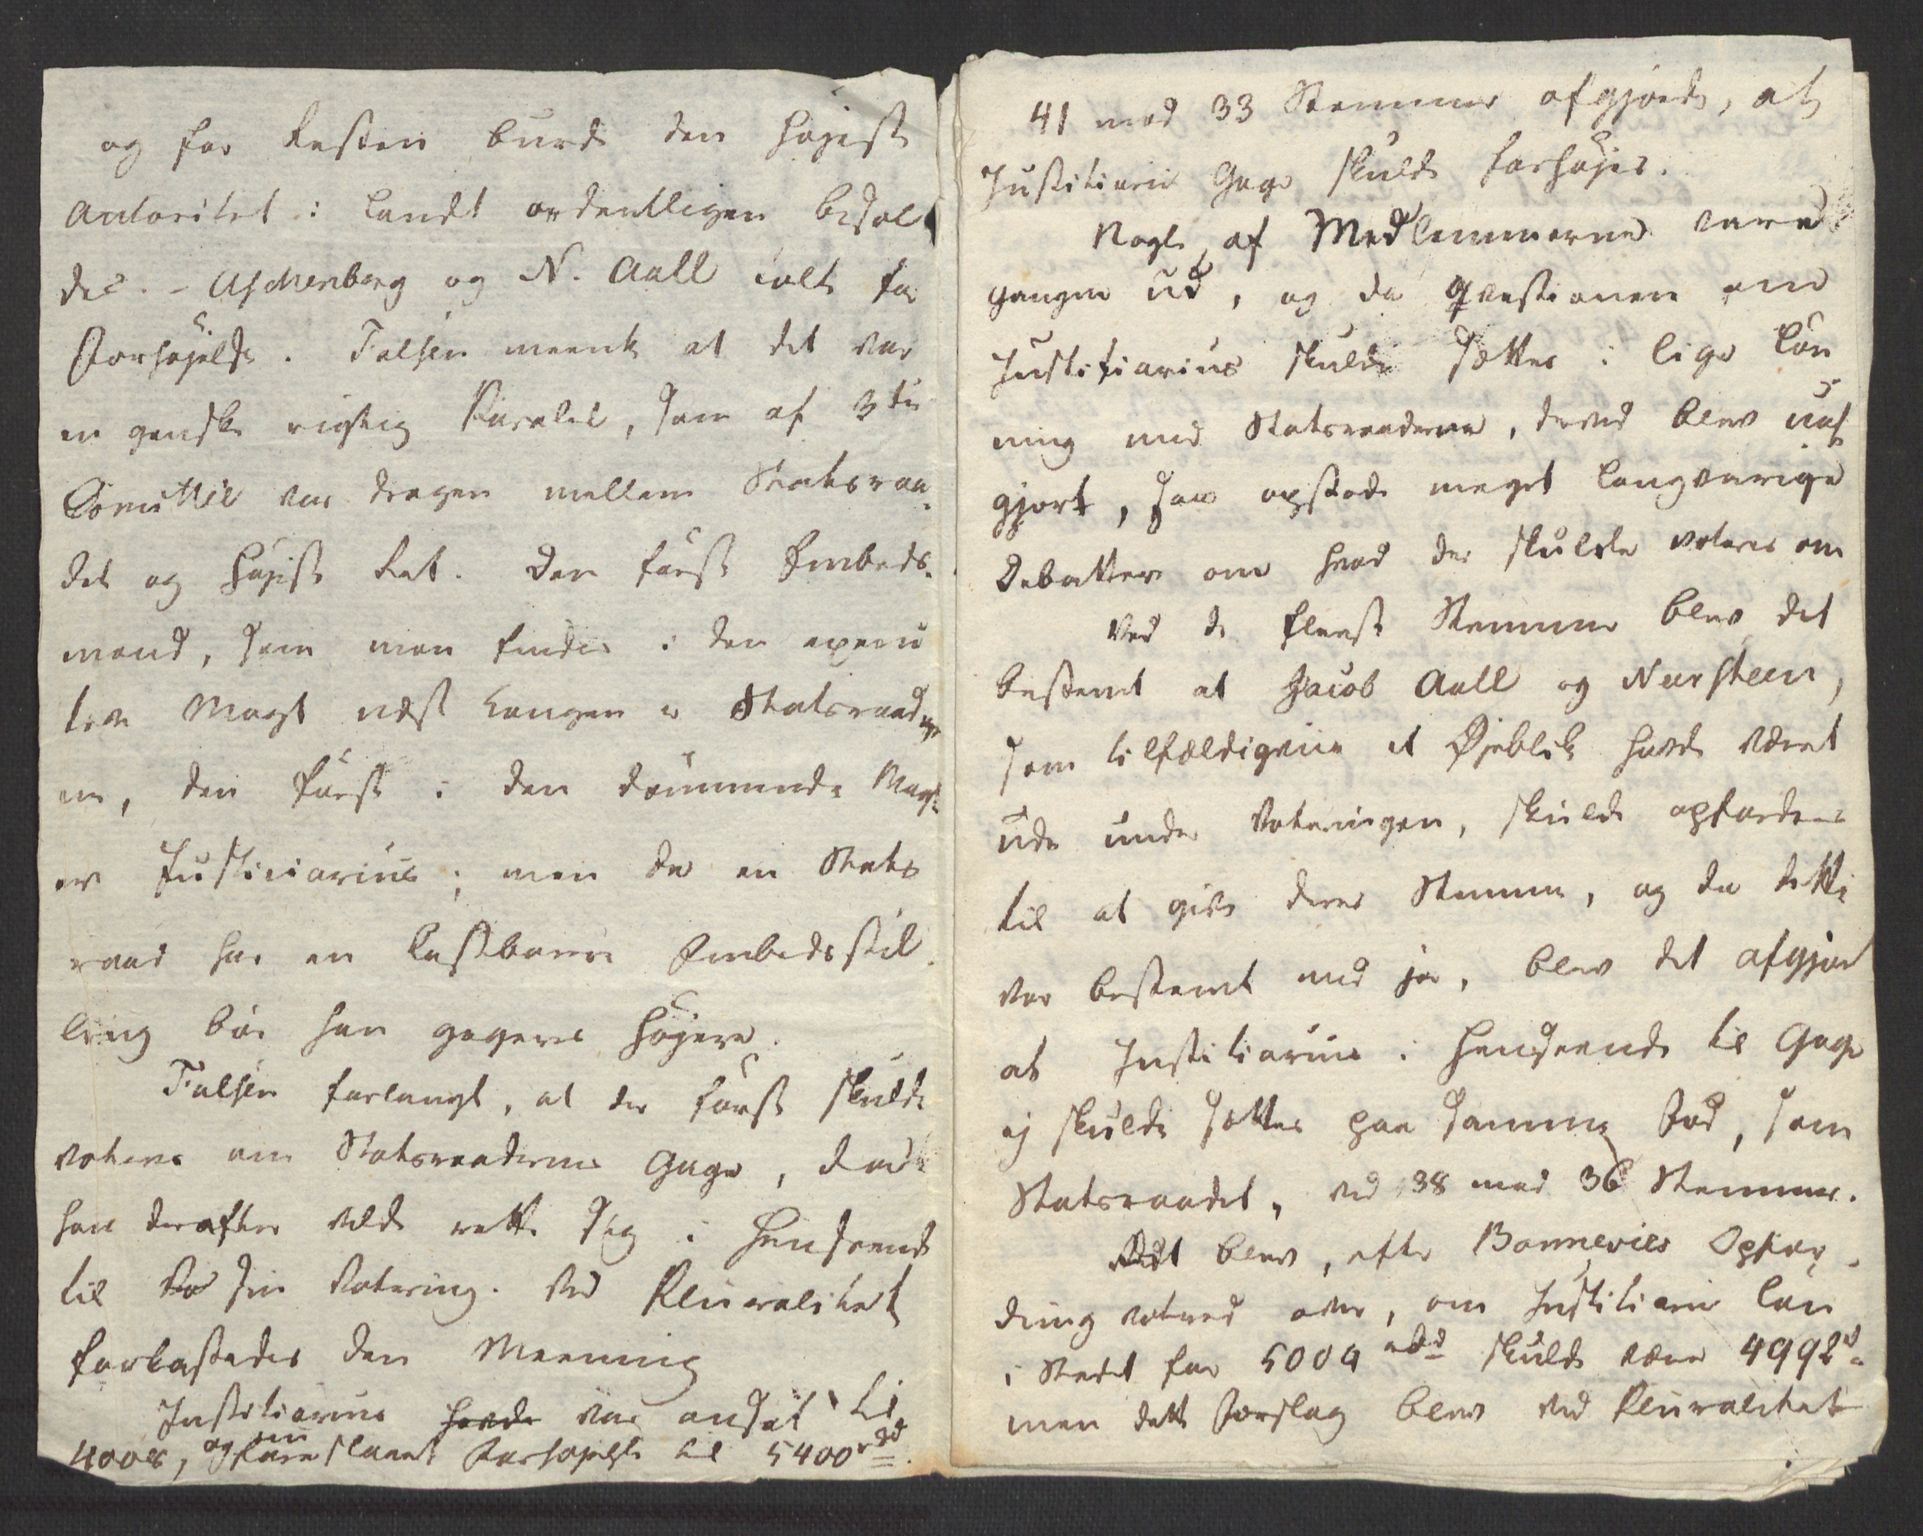 og for Resten burde den højeste
Autoritet i Landet ordentligen besol¬
des. – Aschenberg og N. Aall talte for
Forhøjelse. Falsen meente at det var
en gandske rigtig Paralel, som af 3die
Comittee var dragen mellem Statsraa¬
det og Højeste Ret. Den første Embeds¬
mand, som man finder i den execu
tive Magt næst Kongen er Statsraader
ne, den første i den dømmende Magt
er Justiciarius; men da en Stats
raad har en kostbarere Embedsstil¬
ling bør han gageres højere.
Falsen forlangte, at der først skulde
voteres om Statsraadernes Gage, da
han derefter vilde rette sig i Henseende
til sin Votering. Ved Pluralitet
forkastedes den Meening
Justitiarius havde var ansat til
4008, og nu foreslaaet Forhøjelse til 5400 rbd.
41 mod 33 Stemmer afgjorde, at
Justitiarii Gage skulde forhøjes.
Nogle af Medlemmerne vare
gangne ud, og da Qvæstionen om
Justitiarius skulde sættes i lige Løn
ning med Statsraaderne, derved blev uaf
gjort, saa opstode meget langvarige
Debatter om hvad der skulde voteres om
Ved de fleeste Stemmer blev det
bestemt at Jacob Aall og Neersteen,
som tilfældigviis et Øjeblik havde været
ude under Voteringen, skulde opfordres
til at give deres Stemme, og da dette
var bestemt med ja, blev det afgjort
at Justitiarius i Henseende til Gage
ej skulde sættes paa samme Fod, som
Statsraadet, ved 38 mod 36 Stemmer.
Det blev, efter Bonnevies Opfor¬
dring voteret over, om Justitiarii Løn
i Stedet for 5004 rbd skulde være 4992
men dette Forslag blev ved Pluralitet